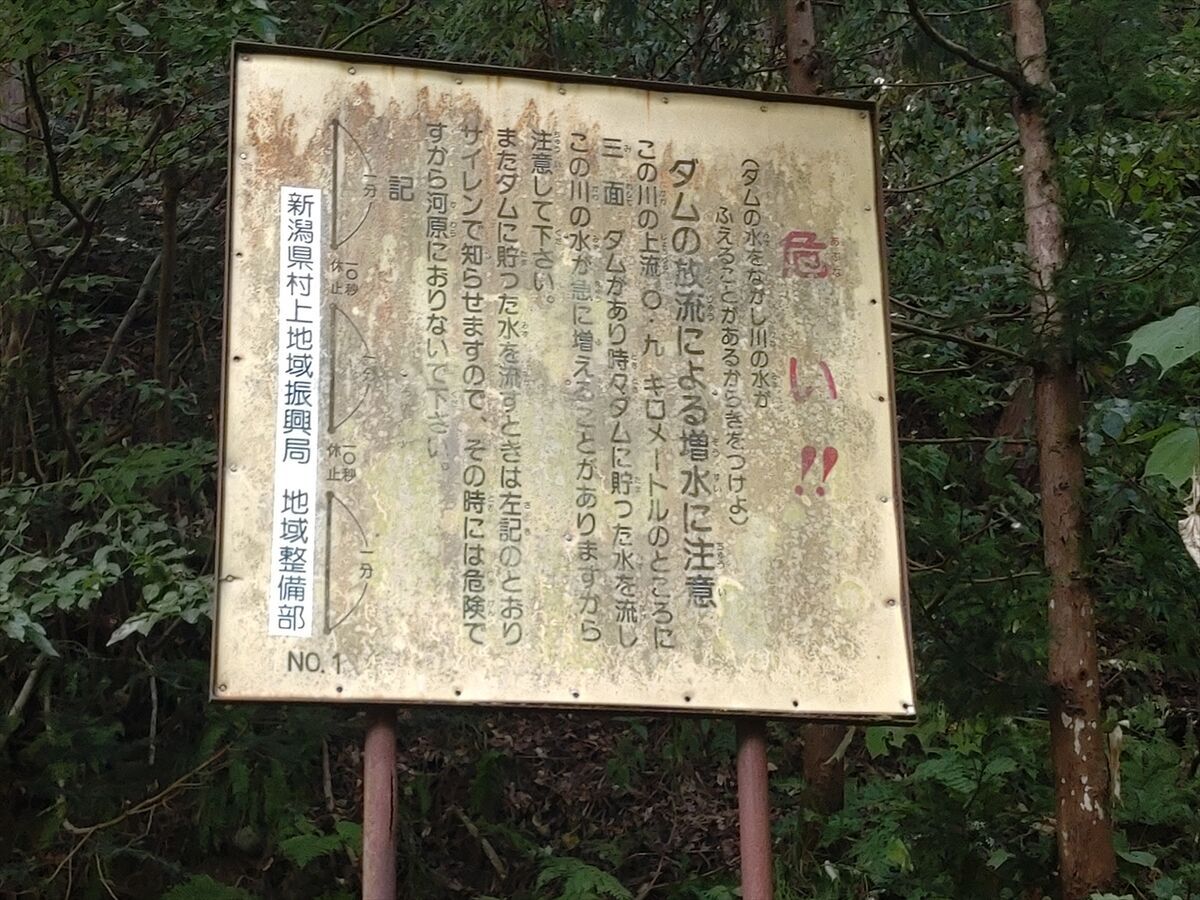 危い!!
(ダムの水をながし川の水が
ふえることがあるからきをつけよ)
ダムの放流による増水に注意
この川の上流〇・九 キロメートルのところに
三面 ダムがあり時々ダムに貯った水を流し
この川の水が急に増えることがありますから
注意して下さい。
またダムに貯った水を流すときは左記のとおり
サイレンで知らせますので、その時には危険で
すから河原におりないで下さい。
記
一分
一〇秒
休止
一分
一〇秒
休止
一分
新潟県村上地域振興局 地域整備部
NO.1